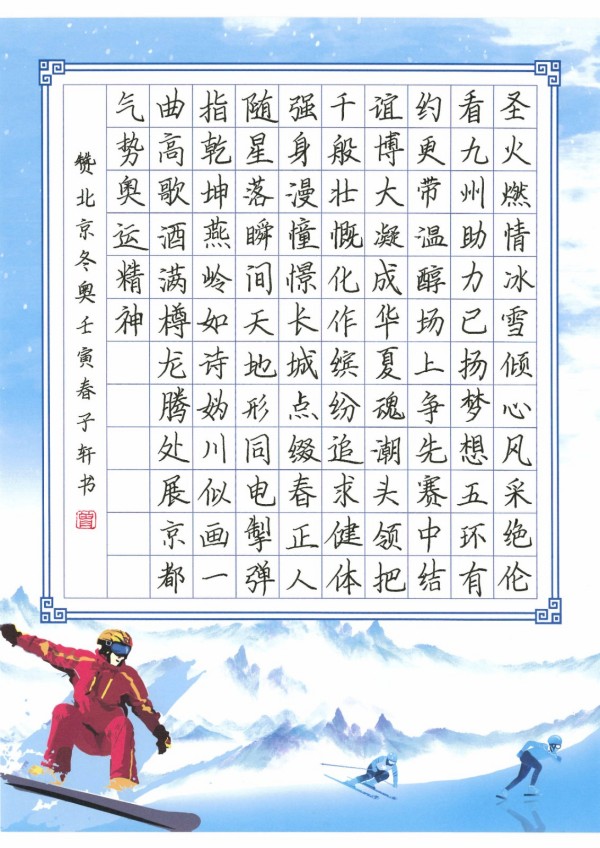 圣火燃情冰雪倾心风采绝伦
看九州助力已扬梦想五环有
约更带温醇场上争先赛中结
谊博大凝成华夏魂潮头领把
千般壮慨化作缤纷追求健体
强身漫憧憬长城点缀春正人
随星落瞬间天地形同电掣弹
指乾坤燕岭如诗妫川似画一
曲高歌酒满樽龙腾处展京都
气势奥运精神
赞北京冬奥壬寅春子轩书